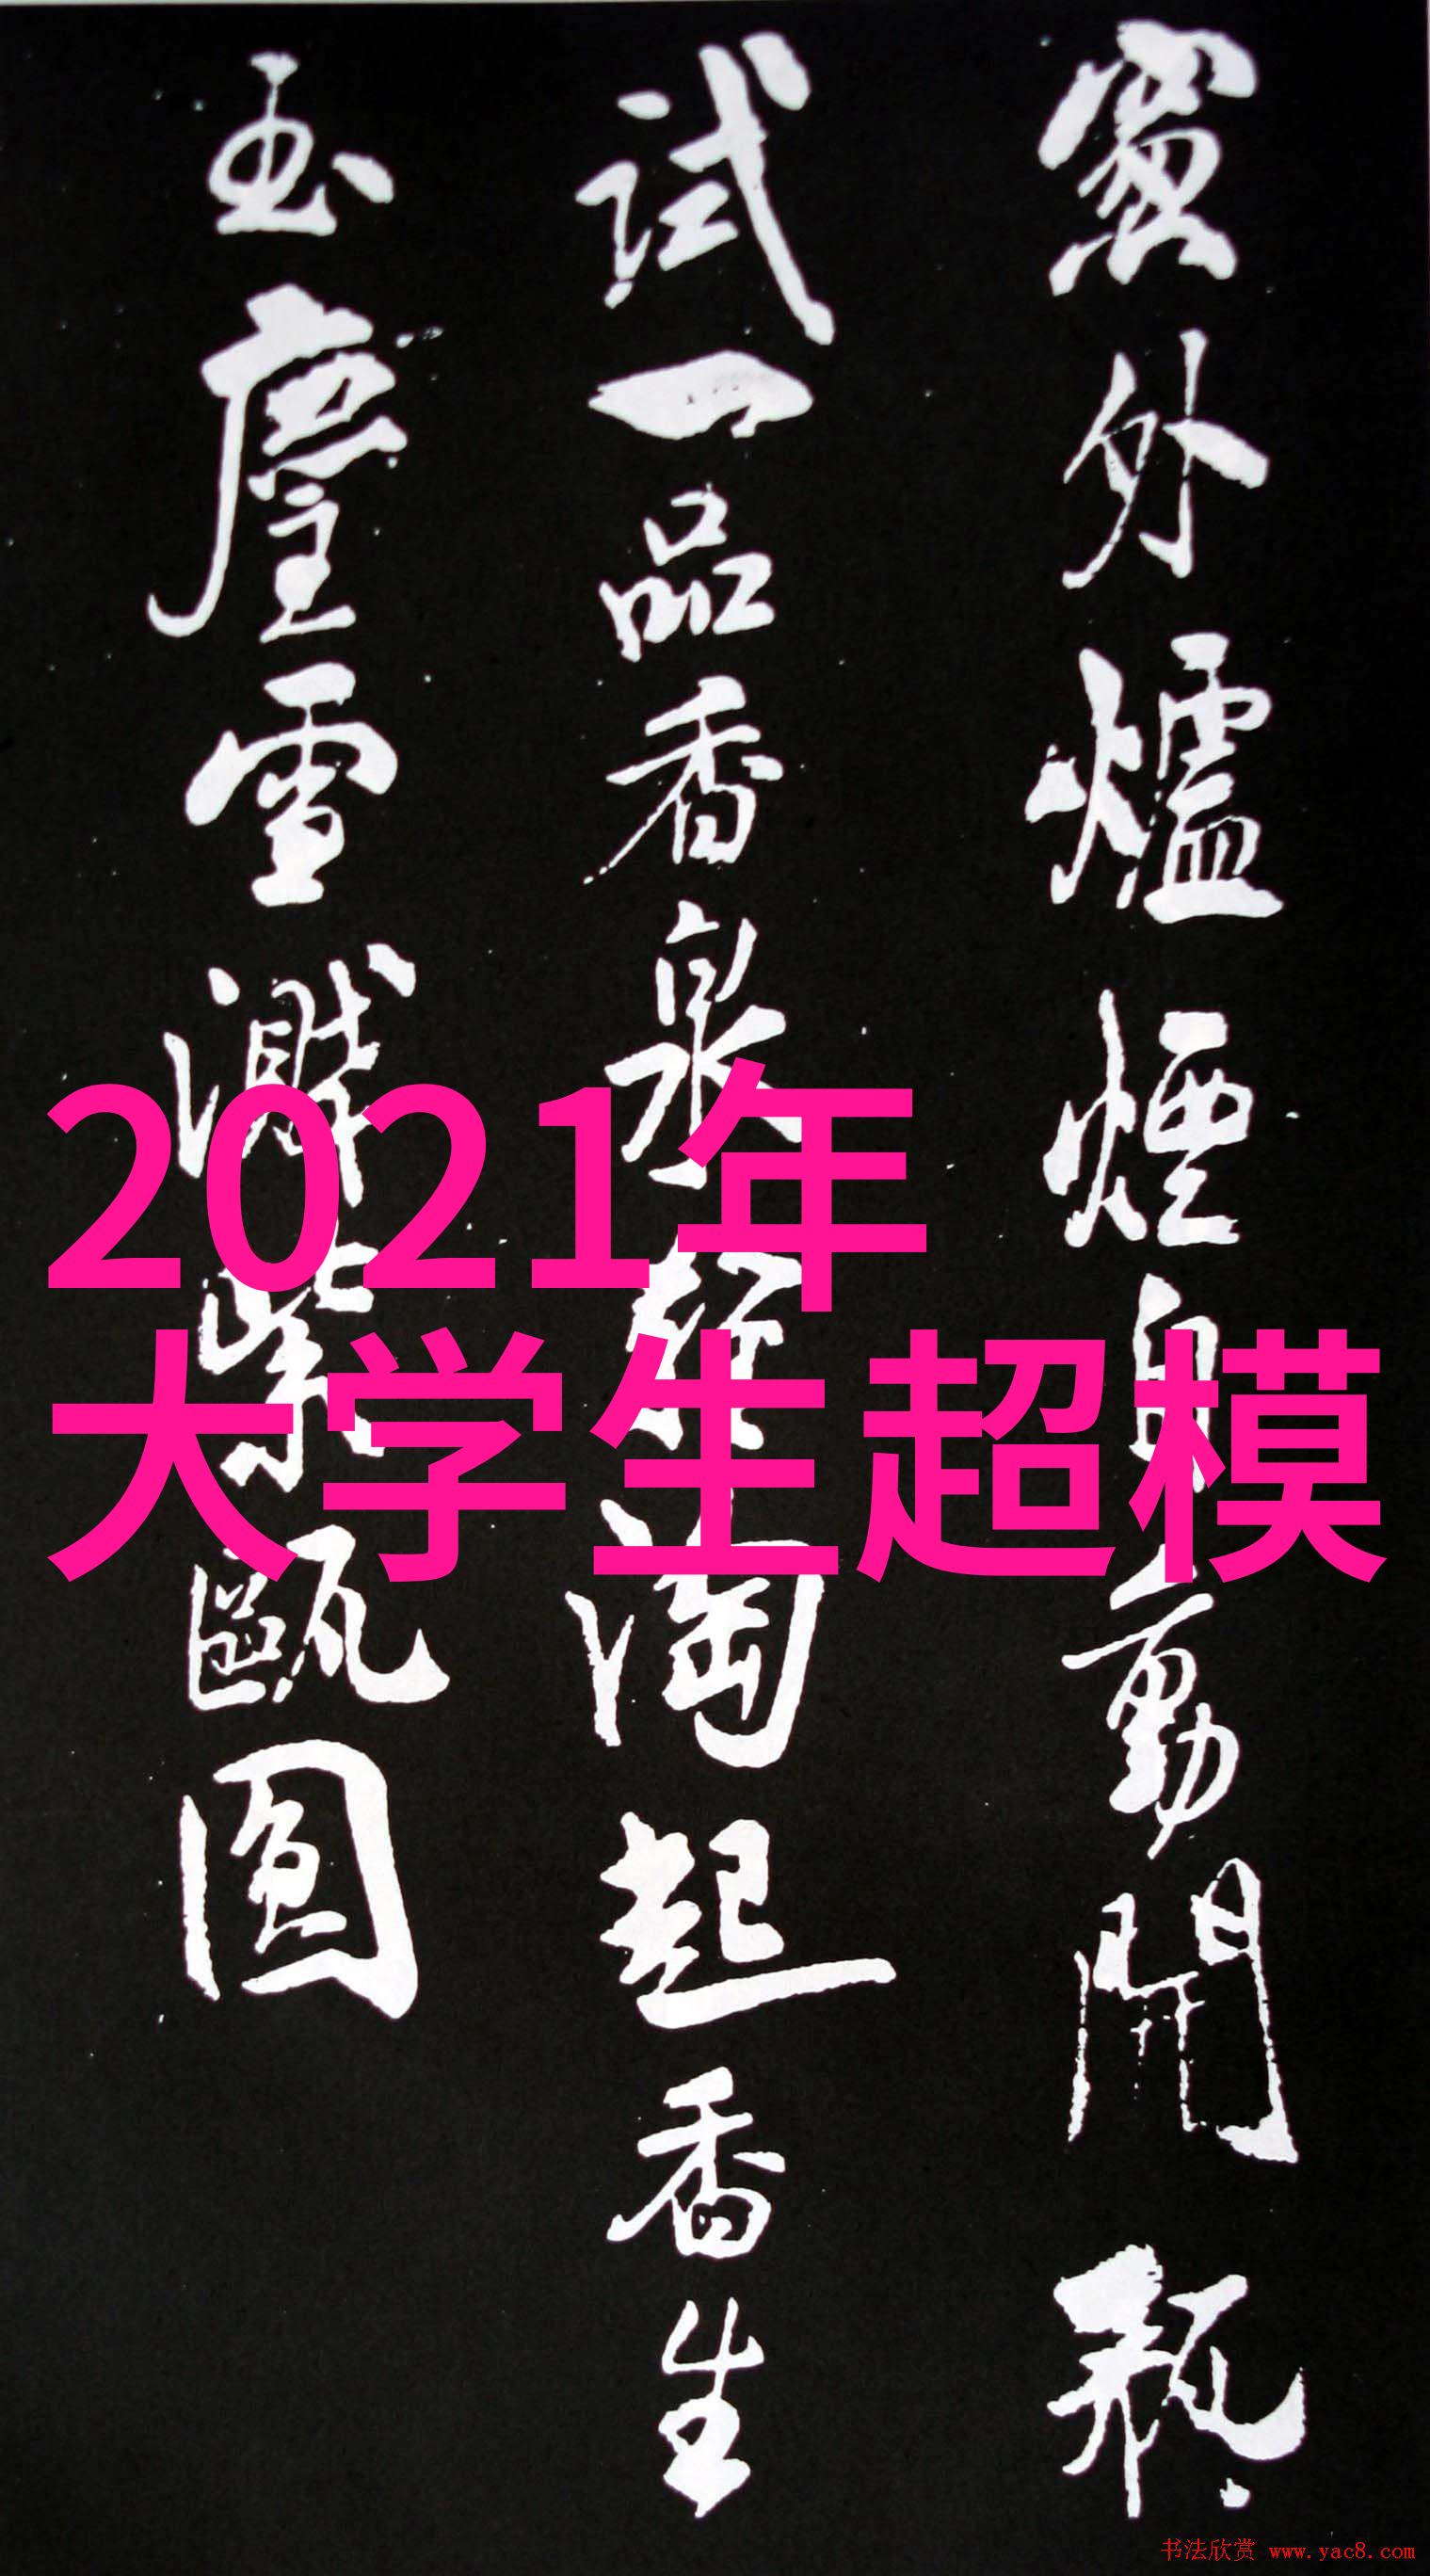 窗外爐煙自動開瓶
試一品香泉輕淘起香生
玉塵雪濺紫甌圓
2021年
大学生超模
书法欣赏 www.yac8.com